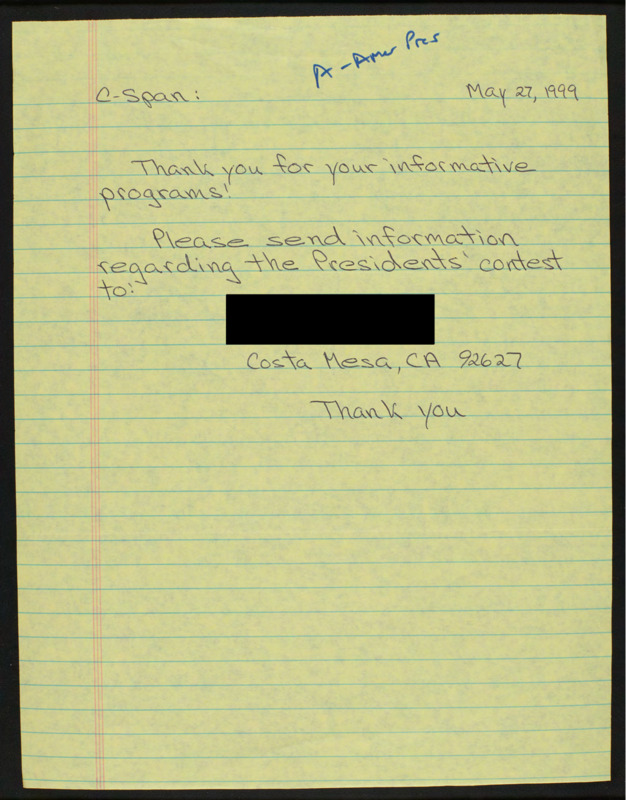 A - Amer Pres
C-Span:
May 27, 1999
Thank you for your informative
programs!
Please send information
regarding the Presidents' contest
to:
Costa Mesa, CA 92627
Thank you